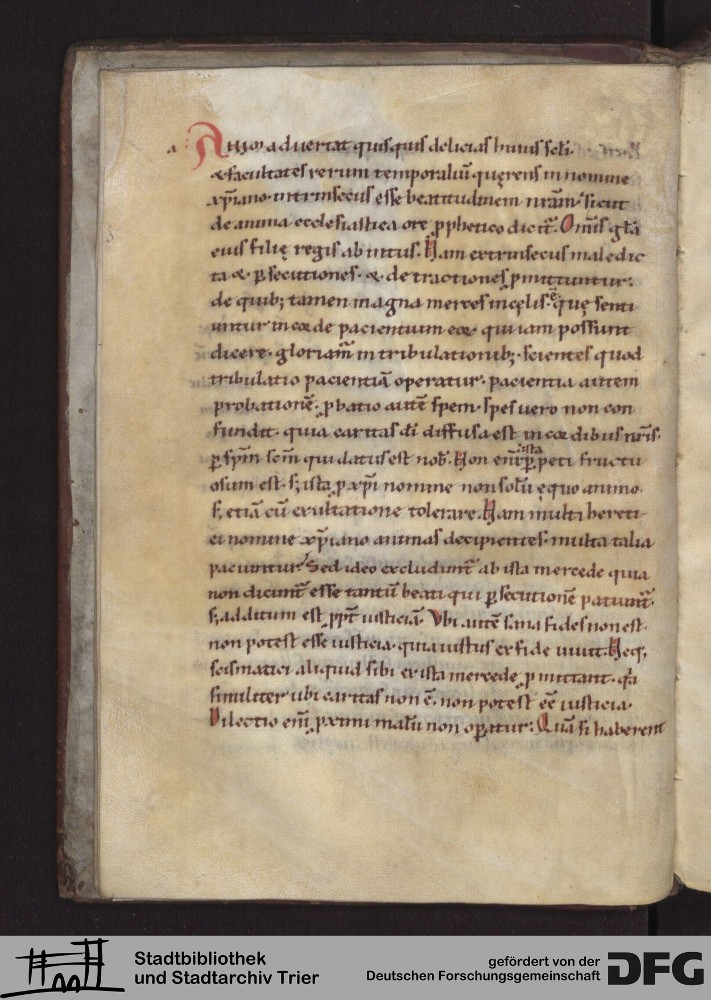 a Animadvertat quisquis delicias huius scłi.
& facultates rerum temporaliū quęrens in nomine
xp̄iano. intrinsecus esse beatitudinem nr̄am. sicut
de anima ecclesiastica ore ꝓphetico dicit̄. Om̄is gła
eius filię regis ab intus. Nam extrinsecus maledic
ta &. ꝑsecutiones. &. detractiones ꝓmittuntur:
de quib; tamen magna merces in cęlis. quę senti
untur in corde pacientium eorꝝ qui iam possunt
dicere. gloriam̄ in tribulationib;. scientes quod
tribulatio pacientiā operatur. pacientia autem
probationē. ꝓbatio autē spem. spes uero non con
fundit. quia caritas dī diffusa est in cordibus nr̄is.
ꝑ sp̄m scm̄ qui datus est nob̄. Non enī ista ꝑpeti fructu
osum est. s; ista ꝓ xp̄i nomine non solū ęquo animo.
s; etiā cū exultatione tolerare. Nam multi hereti
ci nomine xp̄iano animas decipientes. multa talia
paciuntur. Sed ideo excludunt̄ ab ista mercede quia
non dictum̄ esse tantū beati qui ꝑsecutionē patiunt̄.
s; additum est. ꝓpt̄ iusticiā. Vbi autē sana fides non est.
non potest esse iusticia. quia iustus ex fide uiuit. Neq;
scismatici aliquid sibi ex ista mercede ꝓmittant. q̄a
similiter ubi caritas non ē. non potest eē iusticia.
Dilectio enī ꝓximi malū non oꝑatur: Quā si haberent
Stadtbibliothek
und Stadtarchiv Trier
gefördert von der
Deutschen Forschungsgemeinschaft
DFG